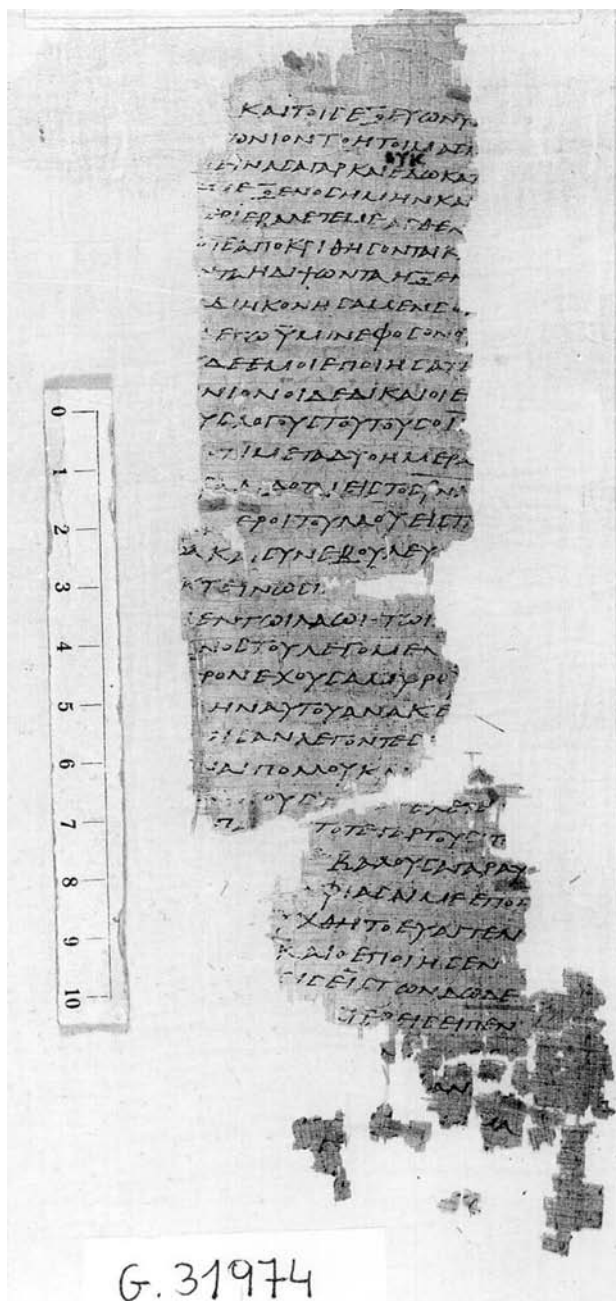 ΚΑΙΤΟΙϹΕΞΕΥΩΝΥ
ΩΝΙΟΝΤΟΗΤΟΙΜΑϹΜ
ΟΥΚ
ΠΕΙΝΑϹΑΓΑΡΚΑΙΕΔΩΚΑ
ΞΕΝΟϹΗΜΗΝΚΑ
ΕΡΙΕΒΑΛΕΤΕΜΕΑϹΘΕΝ
ΟΤΕΑΠΟΚΡΙΘΗϹΟΝΤΑΙΚ
ΝΤΑΗΔΙΨΩΝΤΑΗΞΕΝ
ΔΙΗΚΟΝΗϹΑΜΕΝϹΟ
ΛΕΓΩΥΜΙΝΕΦΟϹΟΝΟ
ΔΕΕΜΟΙΕΠΟΙΗϹΑΤΕ
ΝΙΟΝΟΙΔΕΔΙΚΑΙΟΙΕ
ΥϹΛΟΓΟΥϹΤΟΥΤΟΥϹΟΙ
ΤΙΜΕΤΑΔΥΟΗΜΕΡΑ
ΔΟΤΑΙΕΙϹΤΟϹΡΝΑ
ΕΡΟΙΤΟΥΛΑΟΥΕΙϹΤ
Α ΚΑΙϹΥΝΕΒΟΥΛΕΥ
ΚΤΕΙΝΩϹΙ
ΕΝΤΩΙΛΑΩΙΤΩΙ
ΝΟϹΤΟΥΛΕΓΟΜΕΝ
ΡΟΝΕΧΟΥϹΑΜΥΡΟ
ΛΗΝΑΥΤΟΥΑΝΑΚΕ
ϹΑΝΛΕΓΟΝΤΕϹ
ΝΑΙΠΟΛΛΟΥΚ
ΟΥϹ ΕΛΕΤΕ
Π ΤΟΤΕΓΑΡΤΟΥϹΠ
ΒΑΛΟΥϹΑΓΑΡΑΥ
ΦΙΑϹΑΙΜΕΕΠΟΙ
ΧΘΗΤΟΕΥΑΓΓΕΛ
ΚΑΙΟΕΠΟΙΗϹΕΝ
ΕΙϹΤΩΝΔΩΔΕ
ΙΕΡΕΙϹΕΙΠΕΝ
ΑΝ
0 1 2 3 4 5 6 7 8 9 10
G. 31974